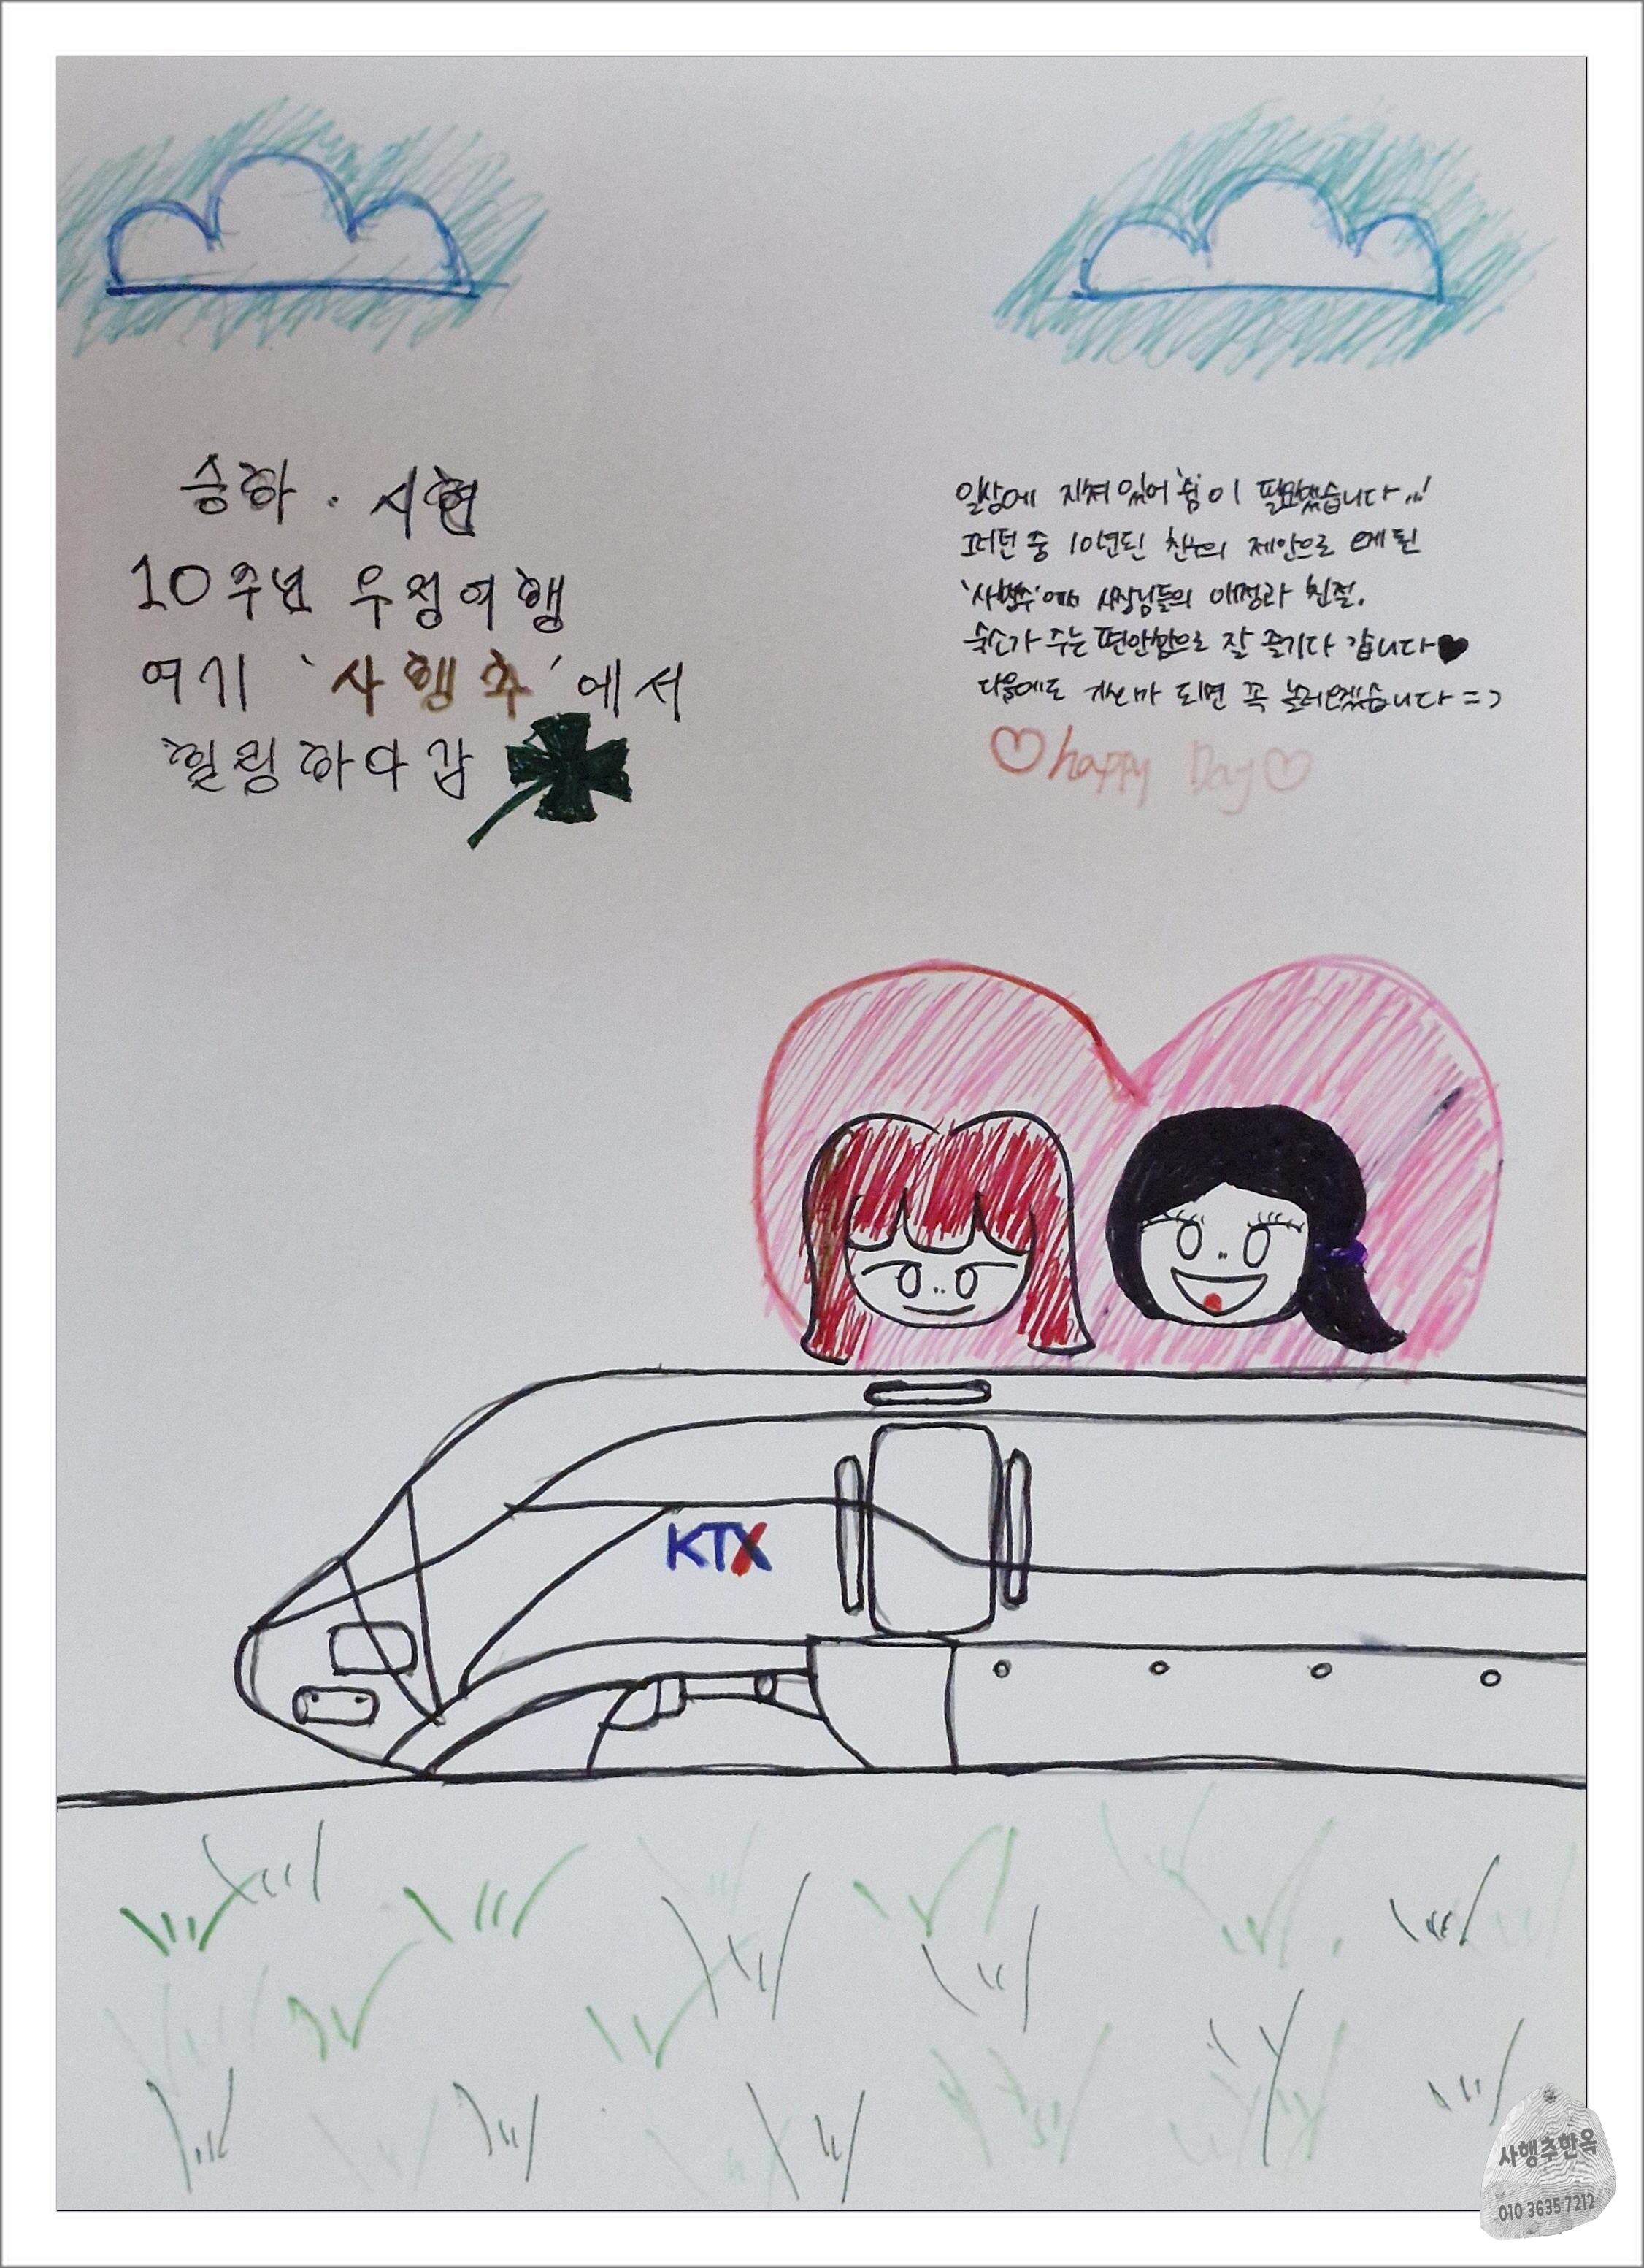 승하 · 시현
10주년 우정여행
여기 '사행추'에서
힐링하다 감
일상에 지쳐있어 쉼이 필요했습니다...!
그러던 중 10년된 친구의 제안으로 오게 된
'사행추'에서 사장님들의 애정과 친절.
숙소가 주는 편안함으로 잘 즐기다 갑니다♥
다음에도 기회가 되면 꼭 놀러오겠습니다 =)
♡happy Day♡
KTX
사행추한옥
010 3635 7212